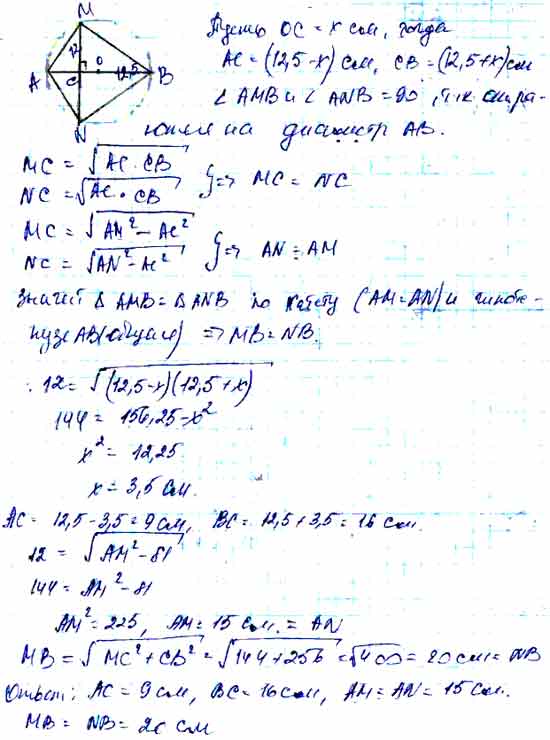 M
12
A
C
O
12,5
B
N
Пусть OC = x см, тогда
AC = (12,5-x) см, CB = (12,5+x) см
∠ AMB и ∠ ANB = 90, т.к. опира-
ются на диаметр AB.
MC = √AC · CB
NC = √AC · CB } => MC = NC
MC = √AM² - AC²
NC = √AN² - AC² } => AN = AM
Значит △ AMB = △ ANB по катету (AM = AN) и гипоте-
нузе AB (общая) => MB = NB.
12 = √(12,5-x)(12,5+x)
144 = 156,25-x²
x² = 12,25
x = 3,5 см.
AC = 12,5-3,5 = 9 см, BC = 12,5+3,5 = 16 см.
12 = √AM² - 81
144 = AM² - 81
AM² = 225, AM = 15 см. = AN
MB = √MC² + CB² = √144+256 = √400 = 20 см = NB
Ответ: AC = 9 см, BC = 16 см, AM = AN = 15 см.
MB = NB = 20 см